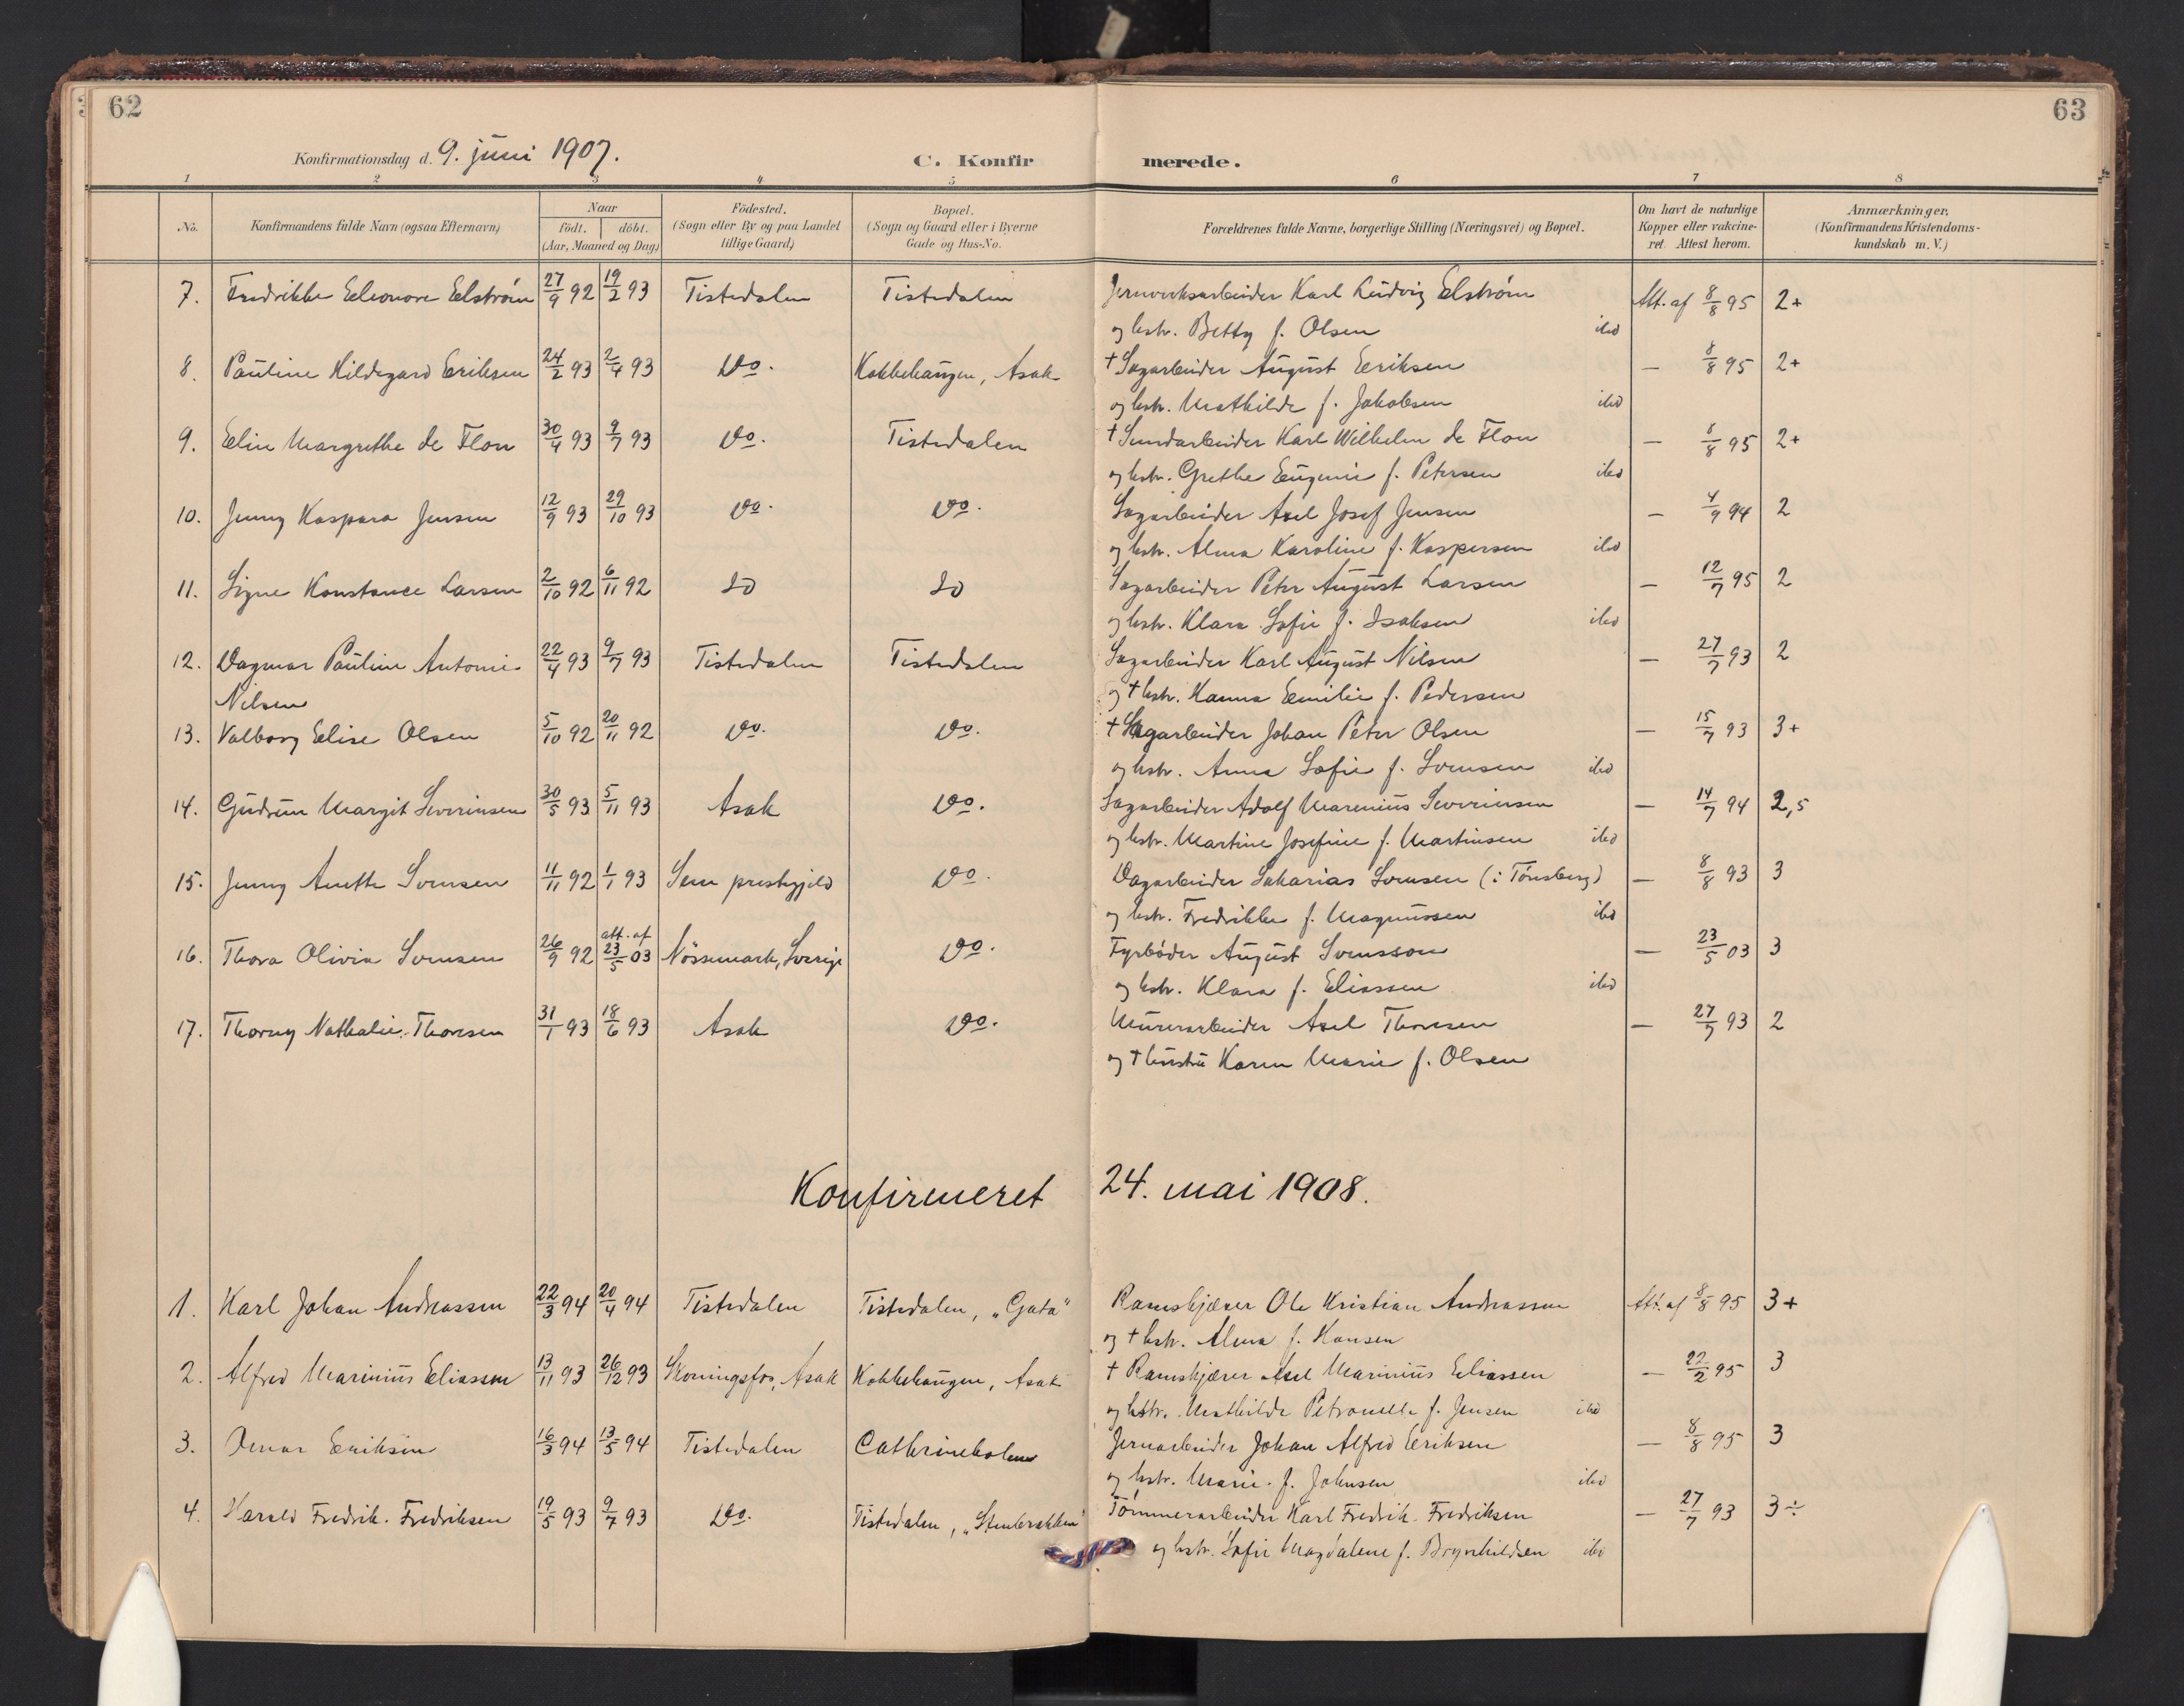 62
63
Konfirmationsdag d. 9. juni 1907.
C. Konfirmerede.
1 2 3 4 5 6 7 8
No. Konfirmandens fulde Navn (ogsaa Efternavn) Naar födt. döbt. (Aar, Maaned og Dag) Födested. (Sogn eller By og paa Landet tillige Gaard) Bopæl. (Sogn og Gaard eller i Byerne Gade og Hus-No. Forældrenes fulde Navne, borgerlige Stilling (Næringsvei) og Bopæl. Om havt de naturlige Kopper eller vakcineret. Attest herom. Anmærkninger. (Konfirmandens Kristendomskundskab m. V.)
7. Fredrikke Eleonore Elström 27/9 92 19/2 93 Tistedalen Tistedalen Jernverksarbeider Karl Ludvig Elström Att. af 8/8 95 2+
og hstr. Betty f. Olsen ibid
8. Pauline Hildegard Eriksen 24/2 93 2/4 93 Do. Kokkehaugen, Asak † Sagarbeider August Eriksen — 8/8 95 2+
og hstr. Mathilde f. Jakobsen ibid
9. Elin Margrethe de Flon 30/4 93 9/7 93 Do. Tistedalen † Sundarbeider Karl Wilhelm de Flon — 8/8 95 2+
og hstr. Grethe Eugenie f. Petersen ibid
10. Jenny Kaspara Jensen 12/9 93 29/10 93 Do. Do. Sagarbeider Axel Josef Jensen — 4/9 94 2
og hstr. Alma Karoline f. Kaspersen ibid
11. Signe Konstance Larsen 2/10 92 6/11 92 Do Do Sagarbeider Peter August Larsen — 12/7 95 2
og hstr. Klara Sofie f. Isaksen ibid
12. Dagmar Pauline Antonie 22/4 93 9/7 93 Tistedalen Tistedalen Sagarbeider Karl August Nilsen — 27/7 93 2
Nilsen og † hstr. Hanna Emilie f. Pedersen
13. Valborg Elise Olsen 5/10 92 20/11 92 Do. Do. † Sagarbeider Johan Peter Olsen — 15/7 93 3+
og hstr. Anna Sofie f. Svensen ibid
14. Gudrun Margit Severinsen 30/5 93 5/11 93 Asak Do. Sagarbeider Adolf Marenius Severinsen — 14/7 94 2,5
og hstr. Martine Josefine f. Martinsen ibid
15. Jenny Anette Svensen 11/11 92 1/1 93 Sem prestegjeld Do. Dagarbeider Sakarias Svensen (i Tönsberg) — 8/8 93 3
og hstr. Fredrikke f. Magnussen ibid
16. Thora Olivia Svensen 26/9 92 att. af 23/5 03 Nössemark, Sverige Do. Fyrböder August Svensson — 23/5 03 3
og hstr. Klara f. Eliassen ibid
17. Thorny Nathalie Thoresen 31/1 93 18/6 93 Asak Do. Murerarbeider Axel Thoresen — 27/7 93 2
og † hustru Karen Marie f. Olsen
Konfirmeret 24. mai 1908.
1. Karl Johan Andreassen 22/3 94 20/4 94 Tistedalen Tistedalen, „Gata" Ramskjærer Ole Kristian Andreassen Att. af 8/8 95 3+
og † hstr. Alma f. Hansen
2. Alfred Marinius Eliassen 13/11 93 26/12 93 Skoningsfos, Asak Kokkehaugen, Asak † Ramskjærer Axel Marinius Eliassen — 22/2 95 3
og hstr. Mathilde Petronelle f. Jensen ibid
3. Omar Eriksen 16/3 94 13/5 94 Tistedalen Cathrineholm Jernarbeider Johan Alfred Eriksen — 8/8 95 3
og hstr. Marie f. Johnsen ibid
4. Harald Fredrik Fredriksen 19/5 93 9/7 93 Do. Tistedalen, „Stenbrækken" Tömmerarbeider Karl Fredrik Fredriksen — 27/7 93 3÷
og hstr. Sofie Magdalene f. Brynhildsen ibid